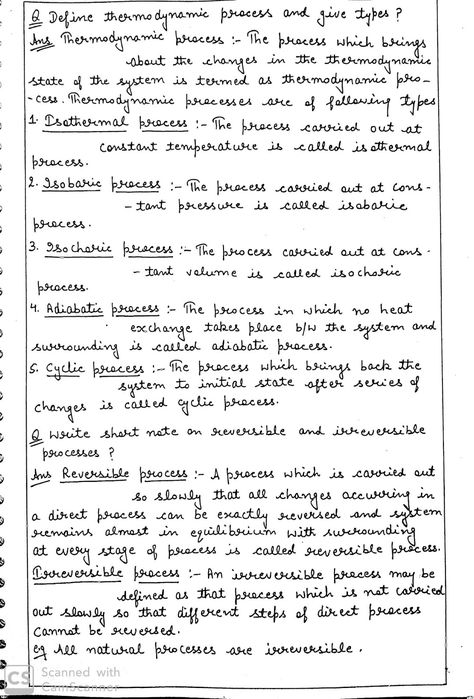 Q Define thermodynamic process and give types ?
Ans Thermodynamic process :- The process which brings
about the changes in the thermodynamic
state of the system is termed as thermodynamic pro-
-cess. Thermodynamic processes are of following types
1. Isothermal process :- The process carried out at
constant temperature is called isothermal
process.
2. Isobaric process :- The process carried out at cons-
-tant pressure is called isobaric
process.
3. Isochoric process :- The process carried out at cons-
-tant volume is called isochoric
process.
4. Adiabatic process :- The process in which no heat
exchange takes place b/w the system and
surrounding is called adiabatic process.
5. Cyclic process :- The process which brings back the
system to initial state after series of
changes is called cyclic process.
Q Write short note on reversible and irreversible
processes ?
Ans Reversible process :- A process which is carried out
so slowly that all changes accurring in
a direct process can be exactly reversed and system
remains almost in equilibrium with surrounding
at every stage of process is called reversible process.
Irreversible process :- An irreversible process may be
defined as that process which is not carried
out slowly so that different steps of direct process
cannot be reversed.
eg All natural processes are irreversible.
CS Scanned with
CamScanner